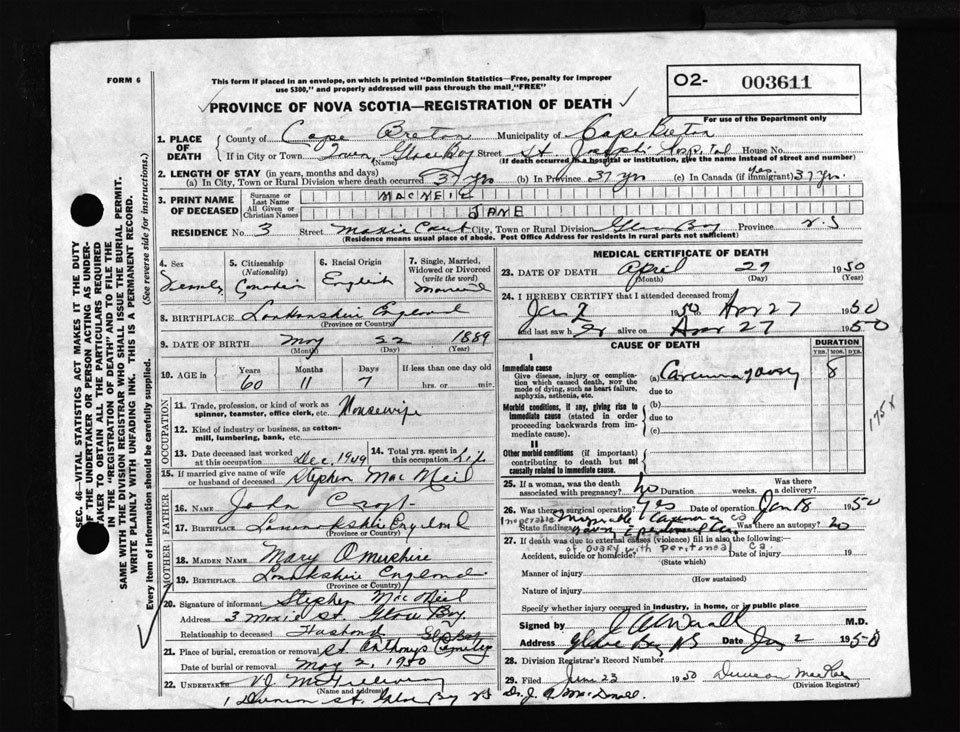 FORM 6
This form if placed in an envelope, on which is printed "Dominion Statistics—Free, penalty for improper
use $300," and properly addressed will pass through the mail "FREE"
O2- 003611
PROVINCE OF NOVA SCOTIA—REGISTRATION OF DEATH
For use of the Department only
1. PLACE OF DEATH
County of Cape Breton Municipality of Cape Breton
If in City or Town Town Glace Bay Street St. Joseph's Hospital House No.
(Name) (If death occurred in a hospital or institution, give the name instead of street and number)
2. LENGTH OF STAY (in years, months and days)
(a) In City, Town or Rural Division where death occurred 37 yrs (b) In Province 37 yrs (c) In Canada (if immigrant) Yes. 37 yrs.
3. PRINT NAME OF DECEASED
Surname or Last Name MACNEIL
All Given or Christian Names JANE
RESIDENCE No. 3 Street City, Town or Rural Division Glace Bay Province N.S
(Residence means usual place of abode. Post Office Address for residents in rural parts not sufficient)
4. Sex Female
5. Citizenship (Nationality) Canadian
6. Racial Origin English
7. Single, Married, Widowed or Divorced (write the word) Married
8. BIRTHPLACE England
(Province or Country)
9. DATE OF BIRTH May 22 1889
(Month) (Day) (Year)
10. AGE in Years 60 Months 11 Days 7 If less than one day old hrs. or min.
OCCUPATION
11. Trade, profession, or kind of work as spinner, teamster, office clerk, etc. Housewife
12. Kind of industry or business, as cotton-mill, lumbering, bank, etc.
13. Date deceased last worked at this occupation Dec. 1949
14. Total yrs. spent in this occupation Life
15. If married give name of wife or husband of deceased Stephen MacNeil
FATHER
16. Name John
17. BIRTHPLACE England
(Province or Country)
MOTHER
18. MAIDEN NAME Mary
19. BIRTHPLACE England
(Province or Country)
20. Signature of informant Stephen MacNeil
Address 3 St. Glace Bay
Relationship to deceased Husband
21. Place of burial, cremation or removal St. Anthony's Cemetery Glace Bay
Date of burial or removal May 2, 1950
22. UNDERTAKER V.J.
(Name and address)
St. Glace Bay NS
MEDICAL CERTIFICATE OF DEATH
23. DATE OF DEATH April 29 1950
(Month) (Day) (Year)
24. I HEREBY CERTIFY that I attended deceased from
Jan 2 1950 to Apr 27 1950
and last saw her alive on Apr 27 1950
CAUSE OF DEATH
DURATION
YRS. MOS. DYS.
I
Immediate cause
Give disease, injury or complication which caused death, NOT the mode of dying, such as heart failure, asphyxia, asthenia, etc.
(a) Carcinoma ovary 8
due to
Morbid conditions, if any, giving rise to immediate cause (stated in order proceeding backwards from immediate cause).
(b)
due to
(c)
175 x
II
Other morbid conditions (if important) contributing to death but not causally related to immediate cause.
25. If a woman, was the death associated with pregnancy? No Duration weeks. Was there a delivery?
26. Was there a surgical operation? Yes Date of operation Jan 18 1950
State findings Inoperable Was there an autopsy? No
of ovary with peritoneal Ca.
27. If death was due to external causes (violence) fill in also the following:
Accident, suicide or homicide? Date of injury 19
(State which)
Manner of injury
(How sustained)
Nature of injury
Specify whether injury occurred in industry, in home, or in public place
Signed by M.D.
Address Glace Bay NS Date 2 1950
28. Division Registrar's Record Number
29. Filed June 23 1950 Duncan
(Division Registrar)
Dr. J. A. McDonald.
SEC. 46—VITAL STATISTICS ACT MAKES IT THE DUTY
OF THE UNDERTAKER OR PERSON ACTING AS UNDERTAKER
TO OBTAIN ALL THE PARTICULARS REQUIRED
IN THE "REGISTRATION OF DEATH" AND TO FILE THE
SAME WITH THE DIVISION REGISTRAR WHO SHALL ISSUE THE BURIAL PERMIT.
WRITE PLAINLY WITH UNFADING INK. THIS IS A PERMANENT RECORD.
Every item of information should be carefully supplied. (See reverse side for instructions.)